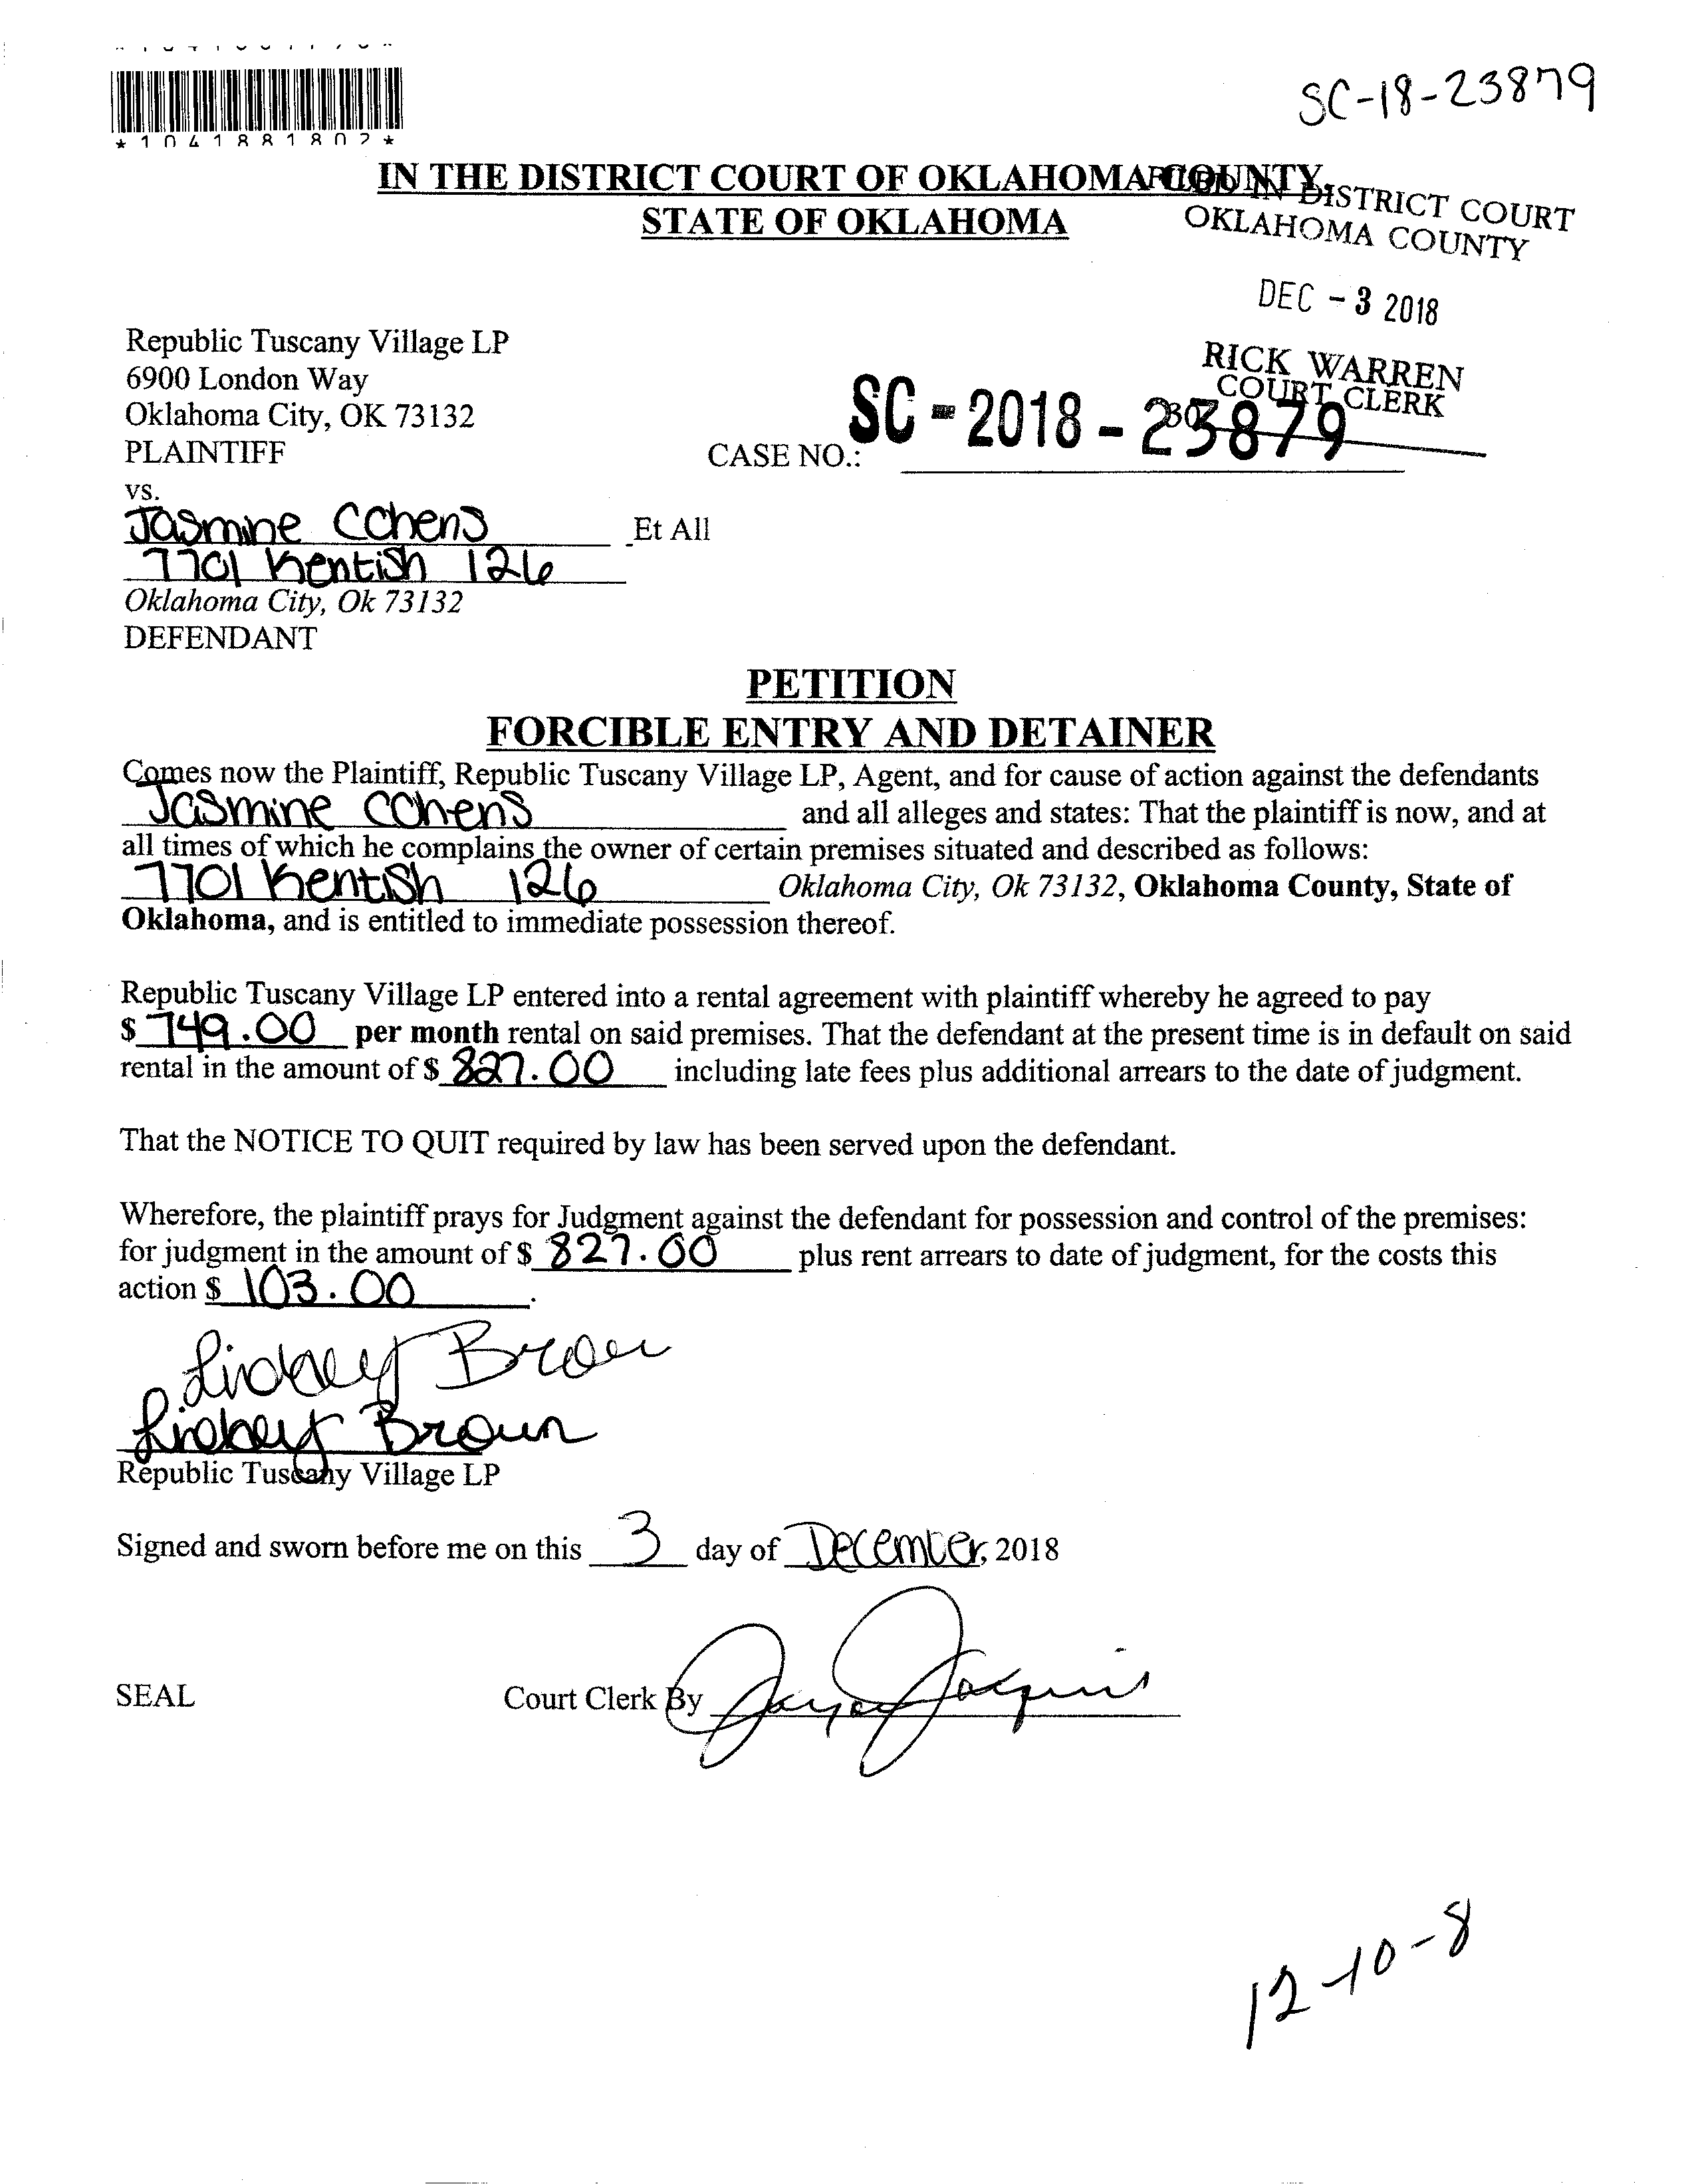 SC-18-23879
*1041881802*
IN THE DISTRICT COURT OF OKLAHOMA COUNTY,
STATE OF OKLAHOMA
FILED IN DISTRICT COURT
OKLAHOMA COUNTY
DEC - 3 2018
RICK WARREN
COURT CLERK
Republic Tuscany Village LP
6900 London Way
Oklahoma City, OK 73132
PLAINTIFF
CASE NO.: SC - 2018 - 23879
vs.
Jasmine Cohens Et All
7701 Kentish 126
Oklahoma City, Ok 73132
DEFENDANT
PETITION
FORCIBLE ENTRY AND DETAINER
Comes now the Plaintiff, Republic Tuscany Village LP, Agent, and for cause of action against the defendants
Jasmine Cohens and all alleges and states: That the plaintiff is now, and at
all times of which he complains the owner of certain premises situated and described as follows:
7701 Kentish 126 Oklahoma City, Ok 73132, Oklahoma County, State of
Oklahoma, and is entitled to immediate possession thereof.
Republic Tuscany Village LP entered into a rental agreement with plaintiff whereby he agreed to pay
$ 749.00 per month rental on said premises. That the defendant at the present time is in default on said
rental in the amount of $ 827.00 including late fees plus additional arrears to the date of judgment.
That the NOTICE TO QUIT required by law has been served upon the defendant.
Wherefore, the plaintiff prays for Judgment against the defendant for possession and control of the premises:
for judgment in the amount of $ 827.00 plus rent arrears to date of judgment, for the costs this
action $ 103.00.
Lindsey Brown
Lindsey Brown
Republic Tuscany Village LP
Signed and sworn before me on this 3 day of December, 2018
SEAL Court Clerk By
12-10-8